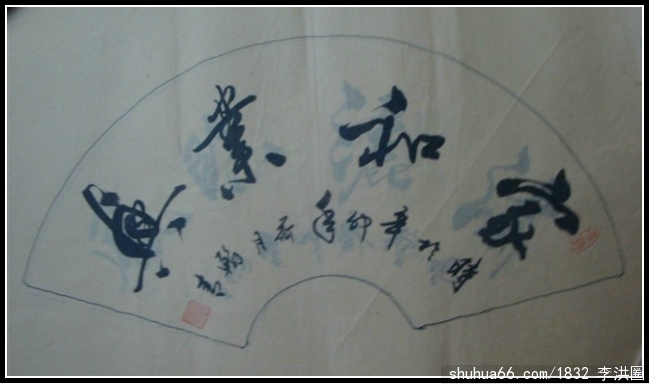 家和業興
時於辛卯年夏月翰
shuhua66.com/1832 李洪圖